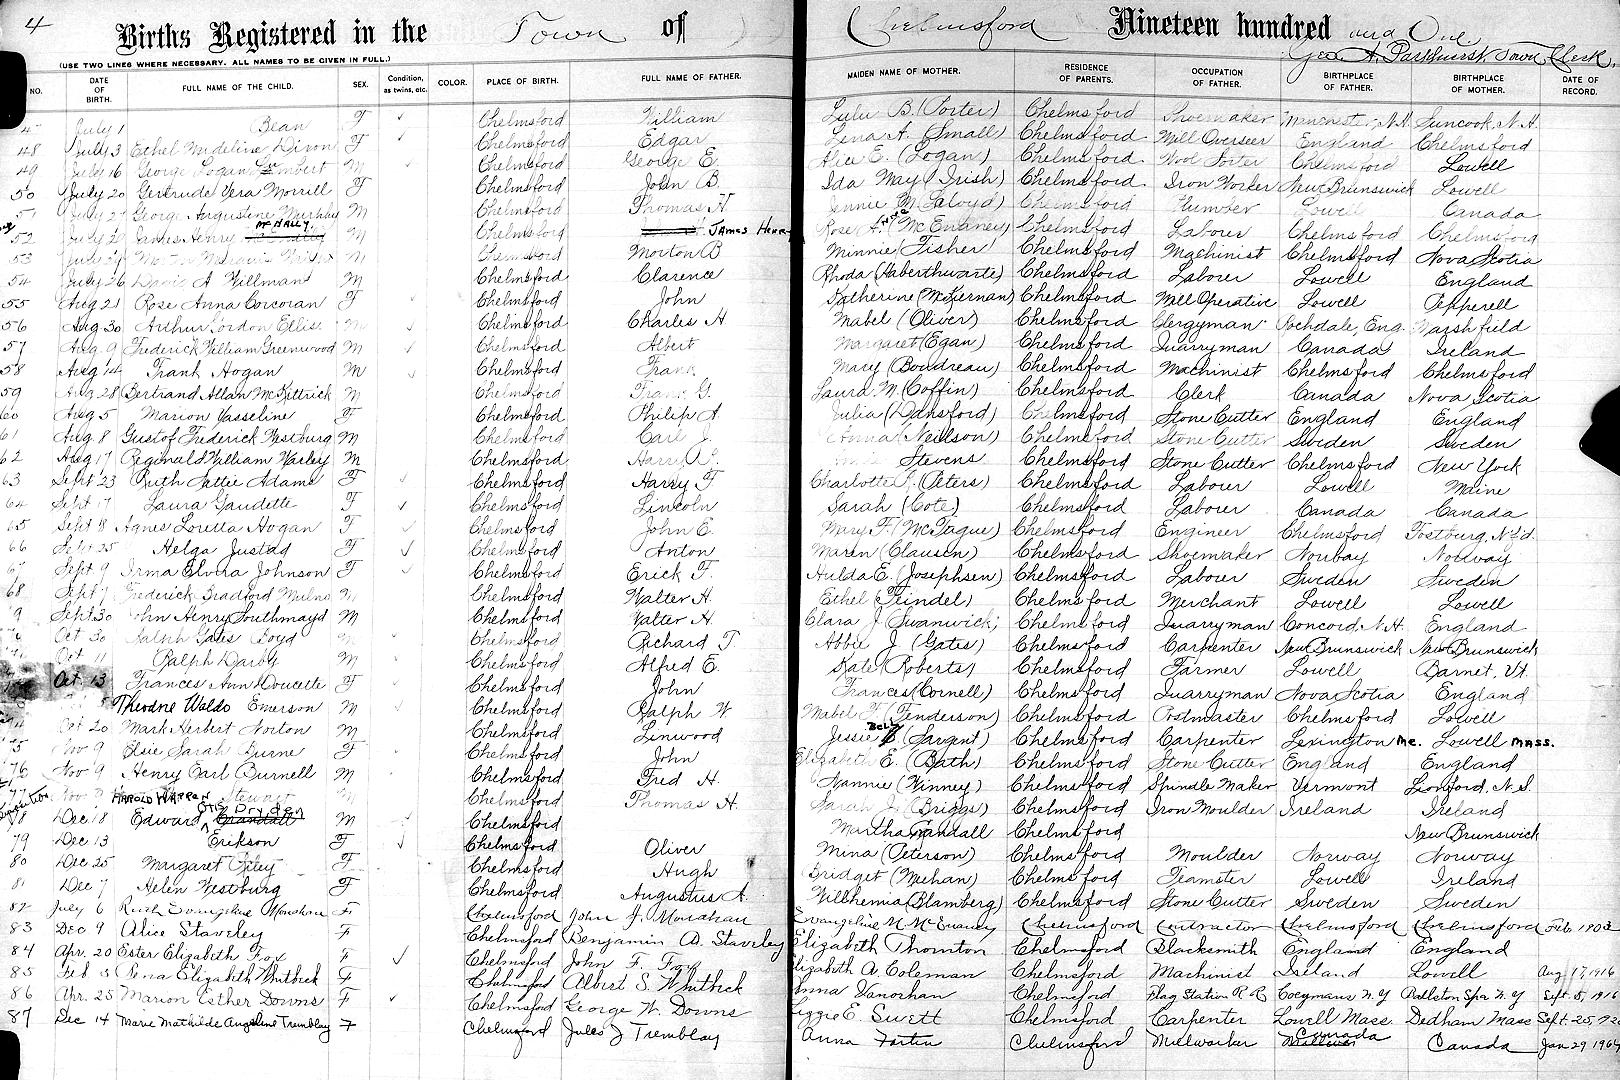 4 Births Registered in the Town of Chelmsford Nineteen hundred and One
(USE TWO LINES WHERE NECESSARY. ALL NAMES TO BE GIVEN IN FULL.) Geo. A. Parkhurst, Town Clerk.
NO. DATE OF BIRTH. FULL NAME OF THE CHILD. SEX. Condition, as twins, etc. COLOR. PLACE OF BIRTH. FULL NAME OF FATHER. MAIDEN NAME OF MOTHER. RESIDENCE OF PARENTS. OCCUPATION OF FATHER. BIRTHPLACE OF FATHER. BIRTHPLACE OF MOTHER. DATE OF RECORD.
47 July 1 Bean F ✓ Chelmsford William Lulu B. (Porter) Chelmsford Shoemaker Manchester, N.H. Suncook, N.H.
48 July 3 Ethel Madeline Dixon F ✓ Chelmsford Edgar Lena A. (Small) Chelmsford Mill Overseer England Chelmsford
49 July 16 George Logan M Chelmsford George E. Alice E. (Logan) Chelmsford Wool Sorter Chelmsford Lowell
50 July 20 Gertrude Vera Morrill F Chelmsford John B. Ida May (Irish) Chelmsford Iron Worker New Brunswick Lowell
51 July 27 George Augustine Murphy M Chelmsford Thomas H Jennie M. Chelmsford Plumber Lowell Canada
52 July 2 James Henry McNally. M Chelmsford James Henry Rose A. (McEnaney) Chelmsford Laborer Chelmsford Chelmsford
53 July M Chelmsford Morton B Minnie (Fisher) Chelmsford Machinist Chelmsford Nova Scotia
54 July 26 Davis A Willman M Chelmsford Clarence Rhoda (Haberthwarte) Chelmsford Laborer Lowell England
55 Aug 21 Rose Anna Corcoran F Chelmsford John Katherine (McKiernan) Chelmsford Mill Operative Lowell Pepperell
56 Aug 30 Arthur Gordon Ellis M ✓ Chelmsford Charles H Mabel (Oliver) Chelmsford Clergyman Rochdale, Eng. Marshfield
57 Aug. 9 Frederick William Greenwood M ✓ Chelmsford Albert Margaret (Egan) Chelmsford Quarryman Canada Ireland
58 Aug 14 Frank Hogan M ✓ Chelmsford Frank Mary (Boudreau) Chelmsford Machinist Chelmsford Chelmsford
59 Aug 28 Bertrand Allan McKittrick M Chelmsford Frank G. Laura M. (Coffin) Chelmsford Clerk Canada Nova Scotia
60 Aug 5 Marion Vasseline F Chelmsford Philip A Julia (Hansford) Chelmsford Stone Cutter England England
61 Aug. 8 Gustof Frederick Westburg M Chelmsford Carl J. Anna (Neilson) Chelmsford Stone Cutter Sweden Sweden
62 Aug 17 Reginald William Varley M Chelmsford Harry Stevens Chelmsford Stone Cutter Chelmsford New York
63 Sept 23 Ruth Hattie Adams F ✓ Chelmsford Harry F Charlotte (Peters) Chelmsford Laborer Lowell Maine
64 Sept 17 Laura Gaudette F ✓ Chelmsford Lincoln Sarah (Cote) Chelmsford Laborer Canada Canada
65 Sept 18 Agnes Loretta Hogan F ✓ Chelmsford John E. Mary F. (McTague) Chelmsford Engineer Chelmsford
66 Sept 25 Helga Justad F ✓ Chelmsford Anton Maren (Clausen) Chelmsford Shoemaker Norway Norway
67 Sept 9 Irma Elvira Johnson F ✓ Chelmsford Erick F. Hulda E. (Josephsen) Chelmsford Laborer Sweden Sweden
68 Sept 7 Frederick Bradford Milne M Chelmsford Walter H. Ethel (Trindel) Chelmsford Merchant Lowell Lowell
69 Sept 30 John Henry Southmayd M Chelmsford Walter H. Clara J (Swanwick) Chelmsford Quarryman Concord, N.H. England
Oct 30 Ralph Gates Boyd M Chelmsford Richard T. Abbie J (Gates) Chelmsford Carpenter New Brunswick New Brunswick
Oct 11 Ralph Darby M Chelmsford Alfred E. Kate (Roberts) Chelmsford Farmer Lowell Barnet, Vt.
Oct 13 Frances Ann Doucette F Chelmsford John Frances (Cornell) Chelmsford Quarryman Nova Scotia England
Theodore Waldo Emerson M ✓ Chelmsford Ralph W. Mabel F (Fenderson) Chelmsford Postmaster Chelmsford Lowell
Oct 20 Mark Herbert Norton M Chelmsford Linwood Jessie Bell (Sargent) Chelmsford Carpenter Lexington Me. Lowell Mass.
75 Nov 9 Elsie Sarah Burne F ✓ Chelmsford John Elizabeth E. (Bath) Chelmsford Stone Cutter England England
76 Nov 9 Henry Earl Burnell M Chelmsford Fred H. Nannie (Kinney) Chelmsford Spindle Maker Vermont
77 Nov Harold Warren Stewart M Chelmsford Thomas H. Sarah J. (Briggs) Chelmsford Iron Moulder Ireland Ireland
78 Dec 18 Edward Otis Dryden Crandall M ✓ Chelmsford Martha Crandall Chelmsford New Brunswick
79 Dec 13 Erikson F ✓ Chelmsford Oliver Mina (Peterson) Chelmsford Moulder Norway Norway
80 Dec 25 Margaret Riley F Chelmsford Hugh Bridget (Meehan) Chelmsford Teamster Lowell Ireland
81 Dec 7 Helen Westburg F Chelmsford Augustus A. Wilhemia (Blamberg) Chelmsford Stone Cutter Sweden Sweden
82 July 6 Ruth Evangeline Monahan F Chelmsford John J. Monahan Evangeline M. McEnaney Chelmsford Contractor Chelmsford Chelmsford Feb. 1903
83 Dec 9 Alice Staveley F Chelmsford Benjamin D. Staveley Elizabeth Thornton Chelmsford Blacksmith England England
84 Apr. 20 Ester Elizabeth Fox F ✓ Chelmsford John F. Fox Elizabeth A. Coleman Chelmsford Machinist Ireland Lowell Aug 17, 1916
85 Feb 5 Rena Elizabeth Whitbeck F Chelmsford Albert S. Whitbeck Anna Vanorhan Chelmsford Flag Station R R Coeymans N.Y Ballston Spa N.Y Sept. 5, 1916
86 Apr. 25 Marion Esther Downs F ✓ Chelmsford George W. Downs Lizzie E. Swett Chelmsford Carpenter Lowell Mass. Dedham Mass Sept. 25, 192
87 Dec 14 Marie Mathilde Angeline Tremblay F Chelmsford Jules J Tremblay Anna Fortin Chelmsford Millworker Canada Canada Jan 29 1964